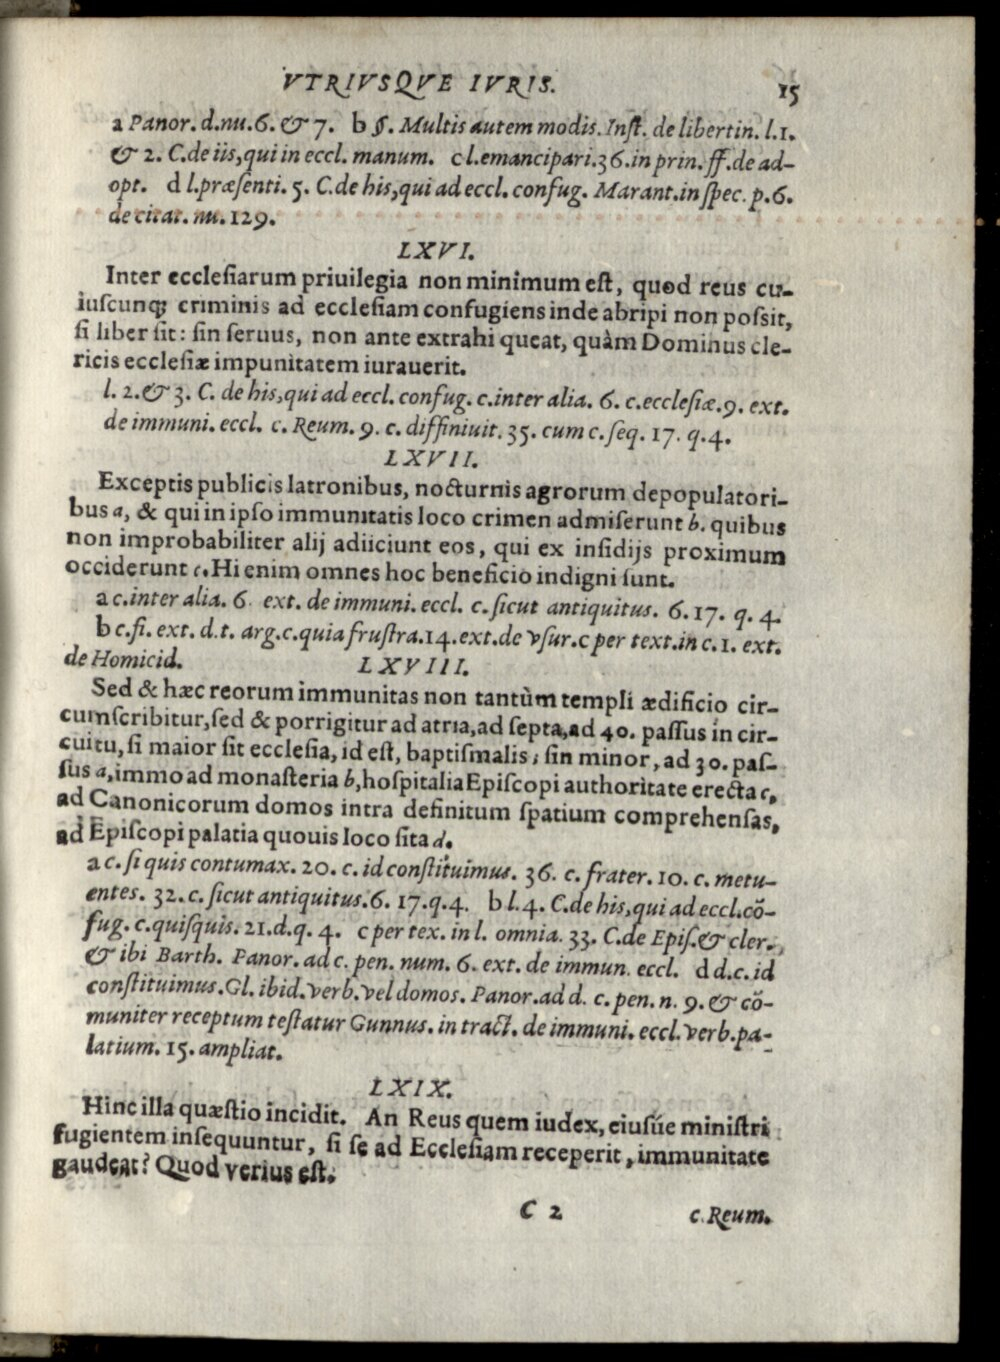 VTRIVSQVE IVRIS. 15
a Panor. d.nu.6. & 7. b §. Multis autem modis. Inſt. de libertin. l.1.
& 2. C.de iis,qui in eccl. manum. c l.emancipari.36.in prin. ff.de ad-
opt. d l.præſenti. 5. C.de his,qui ad eccl. confug. Marant.in ſpec. p.6.
de citat. nu. 129.
LXVI.
Inter eccleſiarum priuilegia non minimum eſt, quod reus cu-
iuscunq; criminis ad eccleſiam confugiens inde abripi non poſsit,
ſi liber ſit: ſin ſeruus, non ante extrahi queat, quàm Dominus cle-
ricis eccleſiæ impunitatem iurauerit.
l. 2.& 3. C. de his,qui ad eccl. confug. c.inter alia. 6. c.eccleſiæ.9. ext.
de immuni. eccl. c. Reum. 9. c. diffiniuit. 35. cum c.ſeq. 17. q.4.
LXVII.
Exceptis publicis latronibus, nocturnis agrorum depopulatori-
bus a, & qui in ipſo immunitatis loco crimen admiſerunt b. quibus
non improbabiliter alij adiiciunt eos, qui ex inſidijs proximum
occiderunt c. Hi enim omnes hoc beneficio indigni ſunt.
a c.inter alia. 6. ext. de immuni. eccl. c.ſicut antiquitus. 6.17. q. 4.
b c.fi. ext. d.t. arg.c.quia fruſtra.14.ext.de vſur.c per text.in c.1. ext.
de Homicid. LXVIII.
Sed & hæc reorum immunitas non tantùm templi ædificio cir-
cumſcribitur,ſed & porrigitur ad atria,ad ſepta,ad 40. paſſus in cir-
cuitu, ſi maior ſit eccleſia, id eſt, baptiſmalis; ſin minor, ad 30. paſ-
ſus a,immo ad monaſteria b,hoſpitalia Epiſcopi authoritate erecta c,
ad Canonicorum domos intra definitum ſpatium comprehenſas,
ad Epiſcopi palatia quouis loco ſita d.
a c. ſi quis contumax. 20. c. id conſtituimus. 36. c. frater. 10. c. metu-
entes. 32. c. ſicut antiquitus.6. 17.q.4. b l.4. C.de his,qui ad eccl.cõ-
fug. c.quiſquis. 21.d.q. 4. c per tex. in l. omnia. 33. C.de Epiſ.& cler.
& ibi Barth. Panor. ad c. pen. num. 6. ext. de immun. eccl. d d.c.id
conſtituimus.Gl. ibid.verb.vel domos. Panor.ad d. c. pen. n. 9. & cõ-
muniter receptum teſtatur Gunnus. in tract. de immuni. eccl. verb.pa-
latium. 15. ampliat.
LXIX.
Hinc illa quæſtio incidit. An Reus quem iudex, eiuſúe miniſtri
fugientem inſequuntur, ſi ſe ad Eccleſiam receperit, immunitate
gaudeat? Quod verius eſt.
C 2 c. Reum.